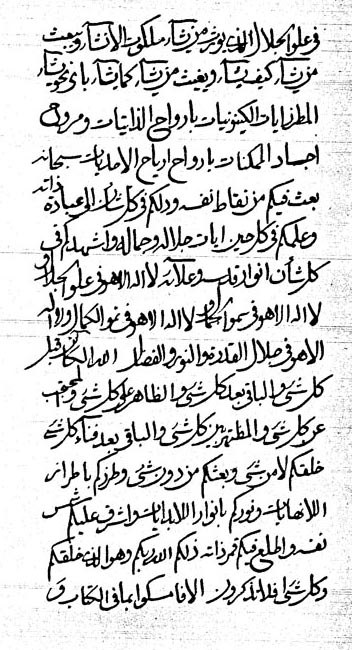 في علو الجلال الذي يورث من يشاء ملكوت الانشاء ويبعث
من يشاء كيف يشاء ويغيث من يشاء كما يشاء باي نحو يشاء
المطرزايات الكينونيات بارواح الذاتيات ومروح
اجساد الممكنات بارواح ارياح الاحديات سبحانه
بعث فيكم من نقاط نفسه ودلكم في كل شأن الى عبادة ذاته
وعلمكم في كل حين ايات جلاله وجماله واشهدكم في
كل شأن انوار قدسه وعلائه لا اله الا هو في علو الجلال و
لا اله الا هو في سمو الجمال لا اله الا هو في نمو الكمال ولا اله
الا هو في جلال القدرة والنور والفضال الله الكائن قبل
كل شيء والباقي بعد كل شيء والظاهر على كل شيء والمحتجب
عن كل شيء والمظهر بين كل شيء والباقي بعد فناء كل شيء
خلقكم لا من شيء وبعثكم من دون شيء وطرزكم باطراز
اللانهايات ونوركم بانوار اللابدايات واشرق عليكم شمس
نفسه واطلع فيكم قمر ذاته ذلكم الله ربكم وهو الذي خلقكم
وكل شيء افلا تذكرون الا فامسكوا بما في الكتاب و